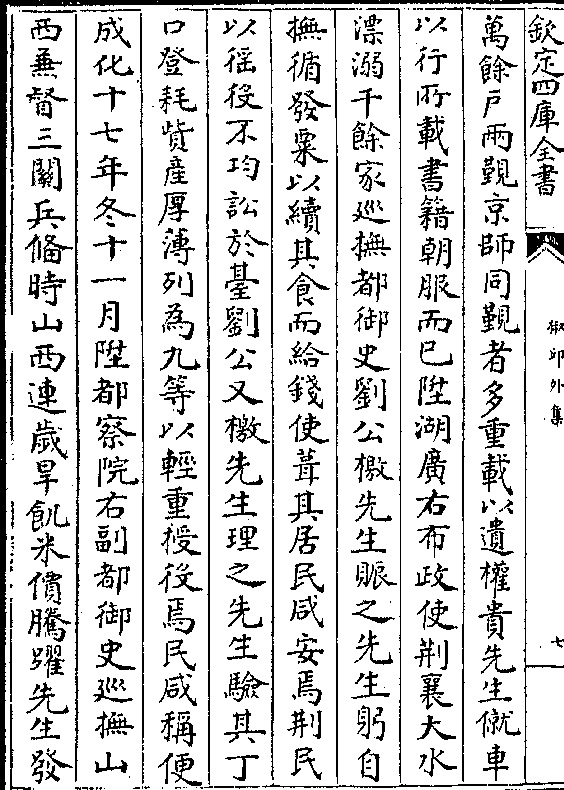 欽定四庫全書
椒邱外集
七
萬餘戸兩覲京師同覲者多重載以遺權貴先生僦車
以行所載書籍朝服而已陞湖廣右布政使荆襄大水
漂溺千餘家巡撫都御史劉公檄先生賑之先生躬自
撫循發粟以續其食而給錢使葺其居民咸安焉荆民
以徭役不均訟於臺劉公又檄先生理之先生驗其丁
口登耗貲産厚薄列為九等以輕重授役焉民咸稱便
成化十七年冬十一月陞都察院右副都御史巡撫山
西兼督三關兵備時山西連歲旱飢米價騰躍先生發